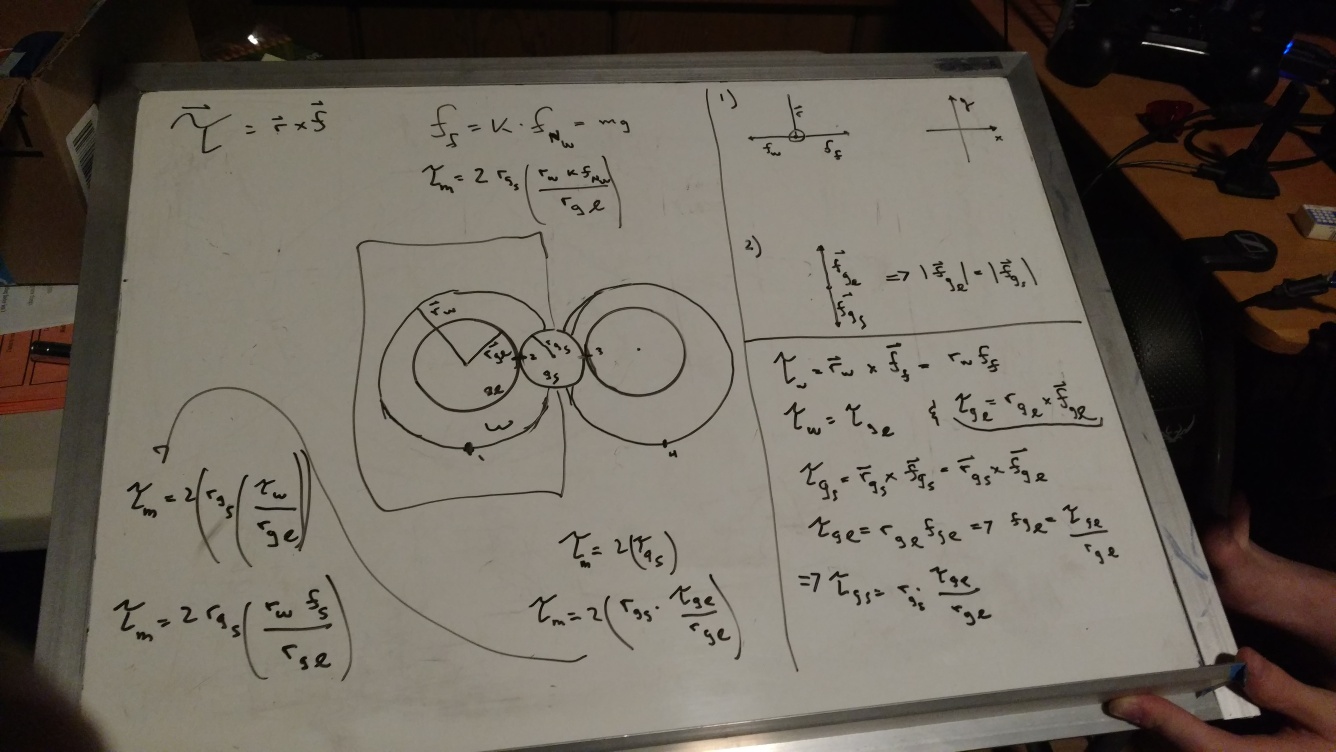 τ⃗ = r⃗ × f⃗
f_s = K · f_Nw = mg
τ_m = 2 r_gs (r_w K f_Nw / r_gl)
r⃗_w
r⃗_gl
2
r_gs
3
gl
gs
w
1
4
τ_m = 2(r_gs(τ_w / r_gl))
τ_m = 2 r_gs (r_w f_s / r_gl)
τ_m = 2(τ_gs)
τ_m = 2(r_gs · τ_gl / r_gl)
1)
r⃗
f_w
f_f
y
x
2)
f⃗_gl
f⃗_gs
=> |f⃗_gl| = |f⃗_gs|
τ_w = r⃗_w × f⃗_f = r_w f_f
τ_w = τ_gl & τ_gl = r_gl × f⃗_gl
τ_gs = r⃗_gs × f⃗_gs = r⃗_gs × f⃗_gl
τ_gl = r_gl f_gl => f_gl = τ_gl / r_gl
=> τ_gs = r_gs · τ_gl / r_gl